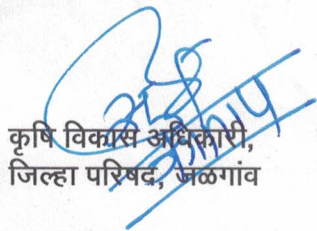 कृषि विकास अधिकारी,
जिल्हा परिषद, जळगांव